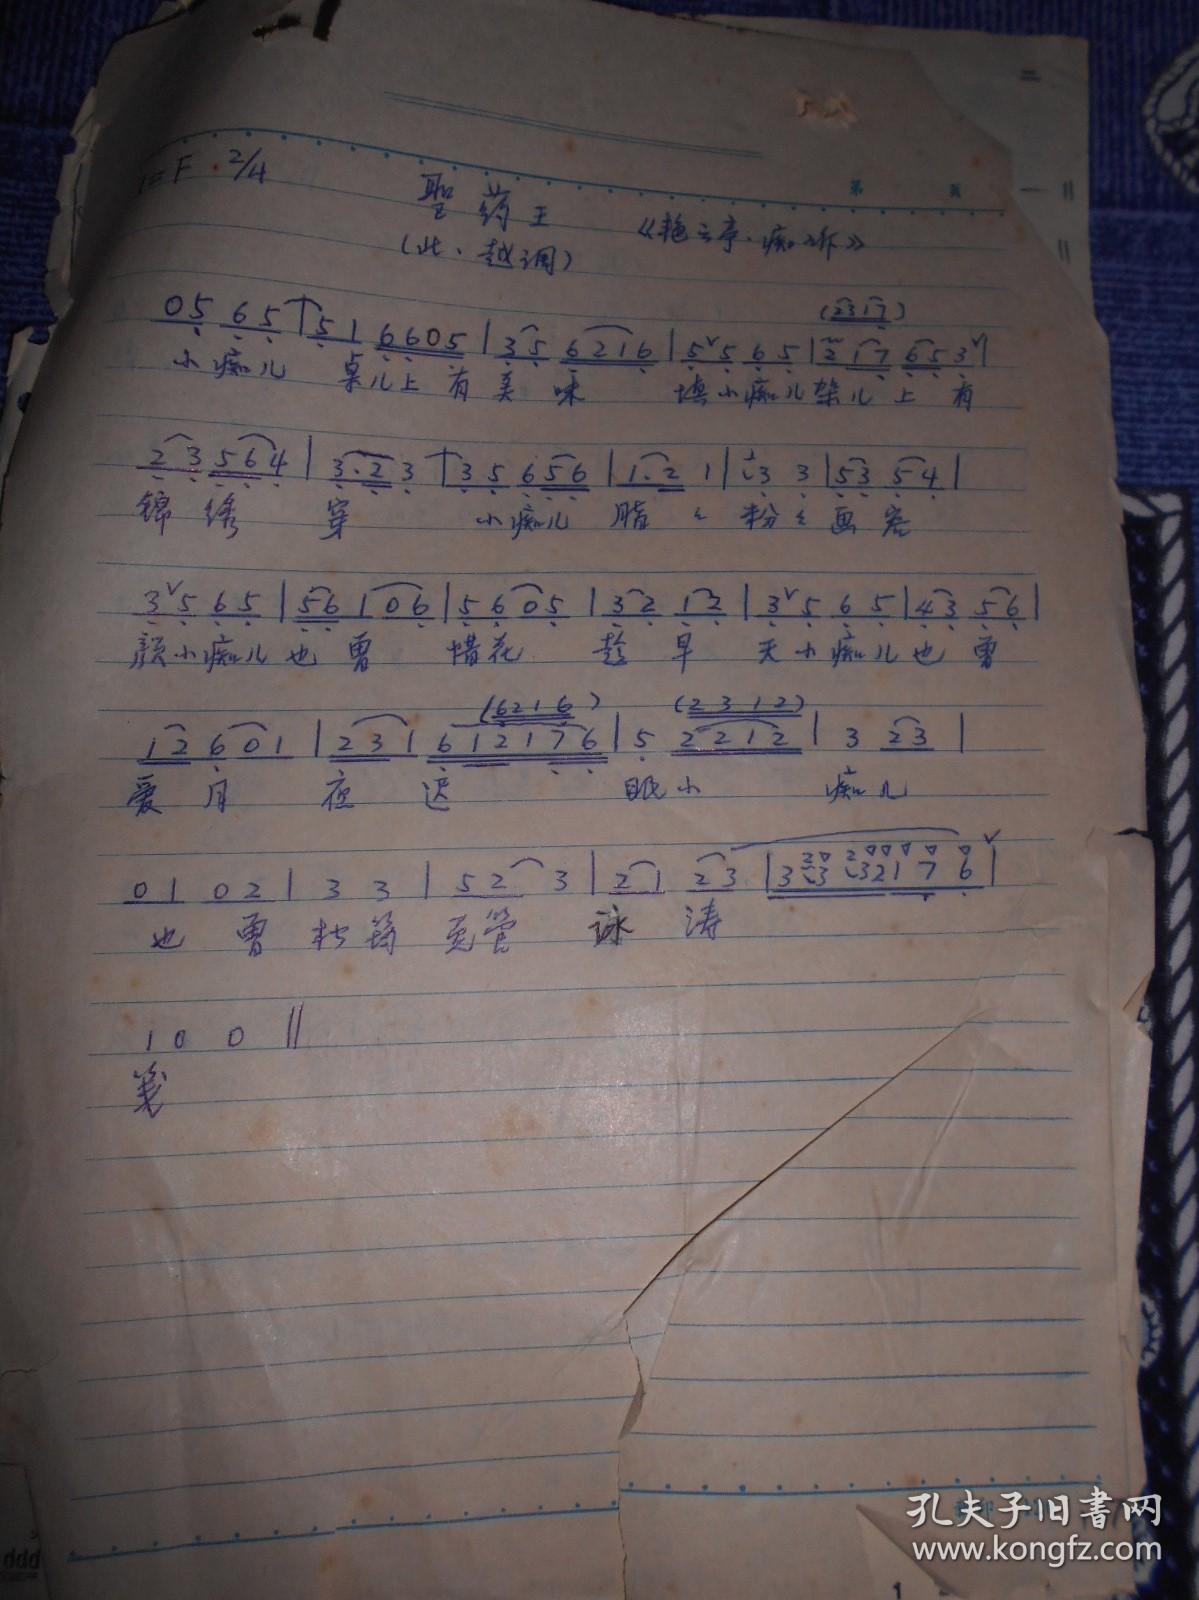 第 页
1=F 2/4
圣药王 《艳云亭·痴诉》
(北、越调)
(2317)
05 65 51 6605 | 35 6216 | 5˅5 65 | 2 17 65 3˅ |
小痴儿 桌儿上有美味 填小痴儿架儿上有
2 3 564 | 3·2 3 3 5 656 | 1·2 1 | 3 3 | 53 54 |
锦绣 穿 小痴儿 脂 粉 画容
3˅5 65 | 56 106 | 5605 | 32 12 | 3˅5 65 | 43 56 |
颜小痴儿也曾 惜花 趁早 天小痴儿也曾
(6216) (2312)
12 601 | 231 612176 | 5 2212 | 3 23 |
爱月 夜迟 眠小 痴儿
01 02 | 3 3 | 52 3 | 21 23 | 33 321 7 6˅ |
也曾 彩笔 兔管 咏涛
1 0 0 ‖
笺
孔夫子旧书网
www.kongfz.com